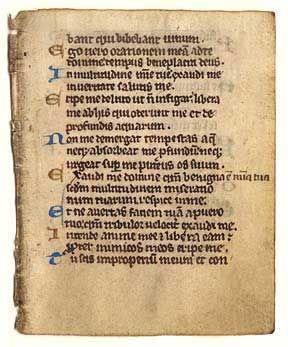 bant qui bibebant uinum.
Ego uero orationem meã ad te
domine tempus beneplaciti deus.
In multitudine mĩe tue exaudi me
in ueritate salutis tue.
Eripe me de luto ut ñ infigar libera
me ab hiis qui oderunt me et de
profundis aquarum.
Non me demergat tempestas aq̃
neq; absorbeat me pfundũ neq;
urgeat sup me puteus os suum.
Exaudi me domine qm̃ benigna ẽ mĩa tua
sedm multitudinem miseratio
num tuarum respice in me.
Et ne auertas faciem tuã a puero
tuo qm̃ tribulor uelociter exaudi me.
Intende anime mee & libera eam
ppter inimicos meos eripe me.
Tu scis improperiũ meum et con